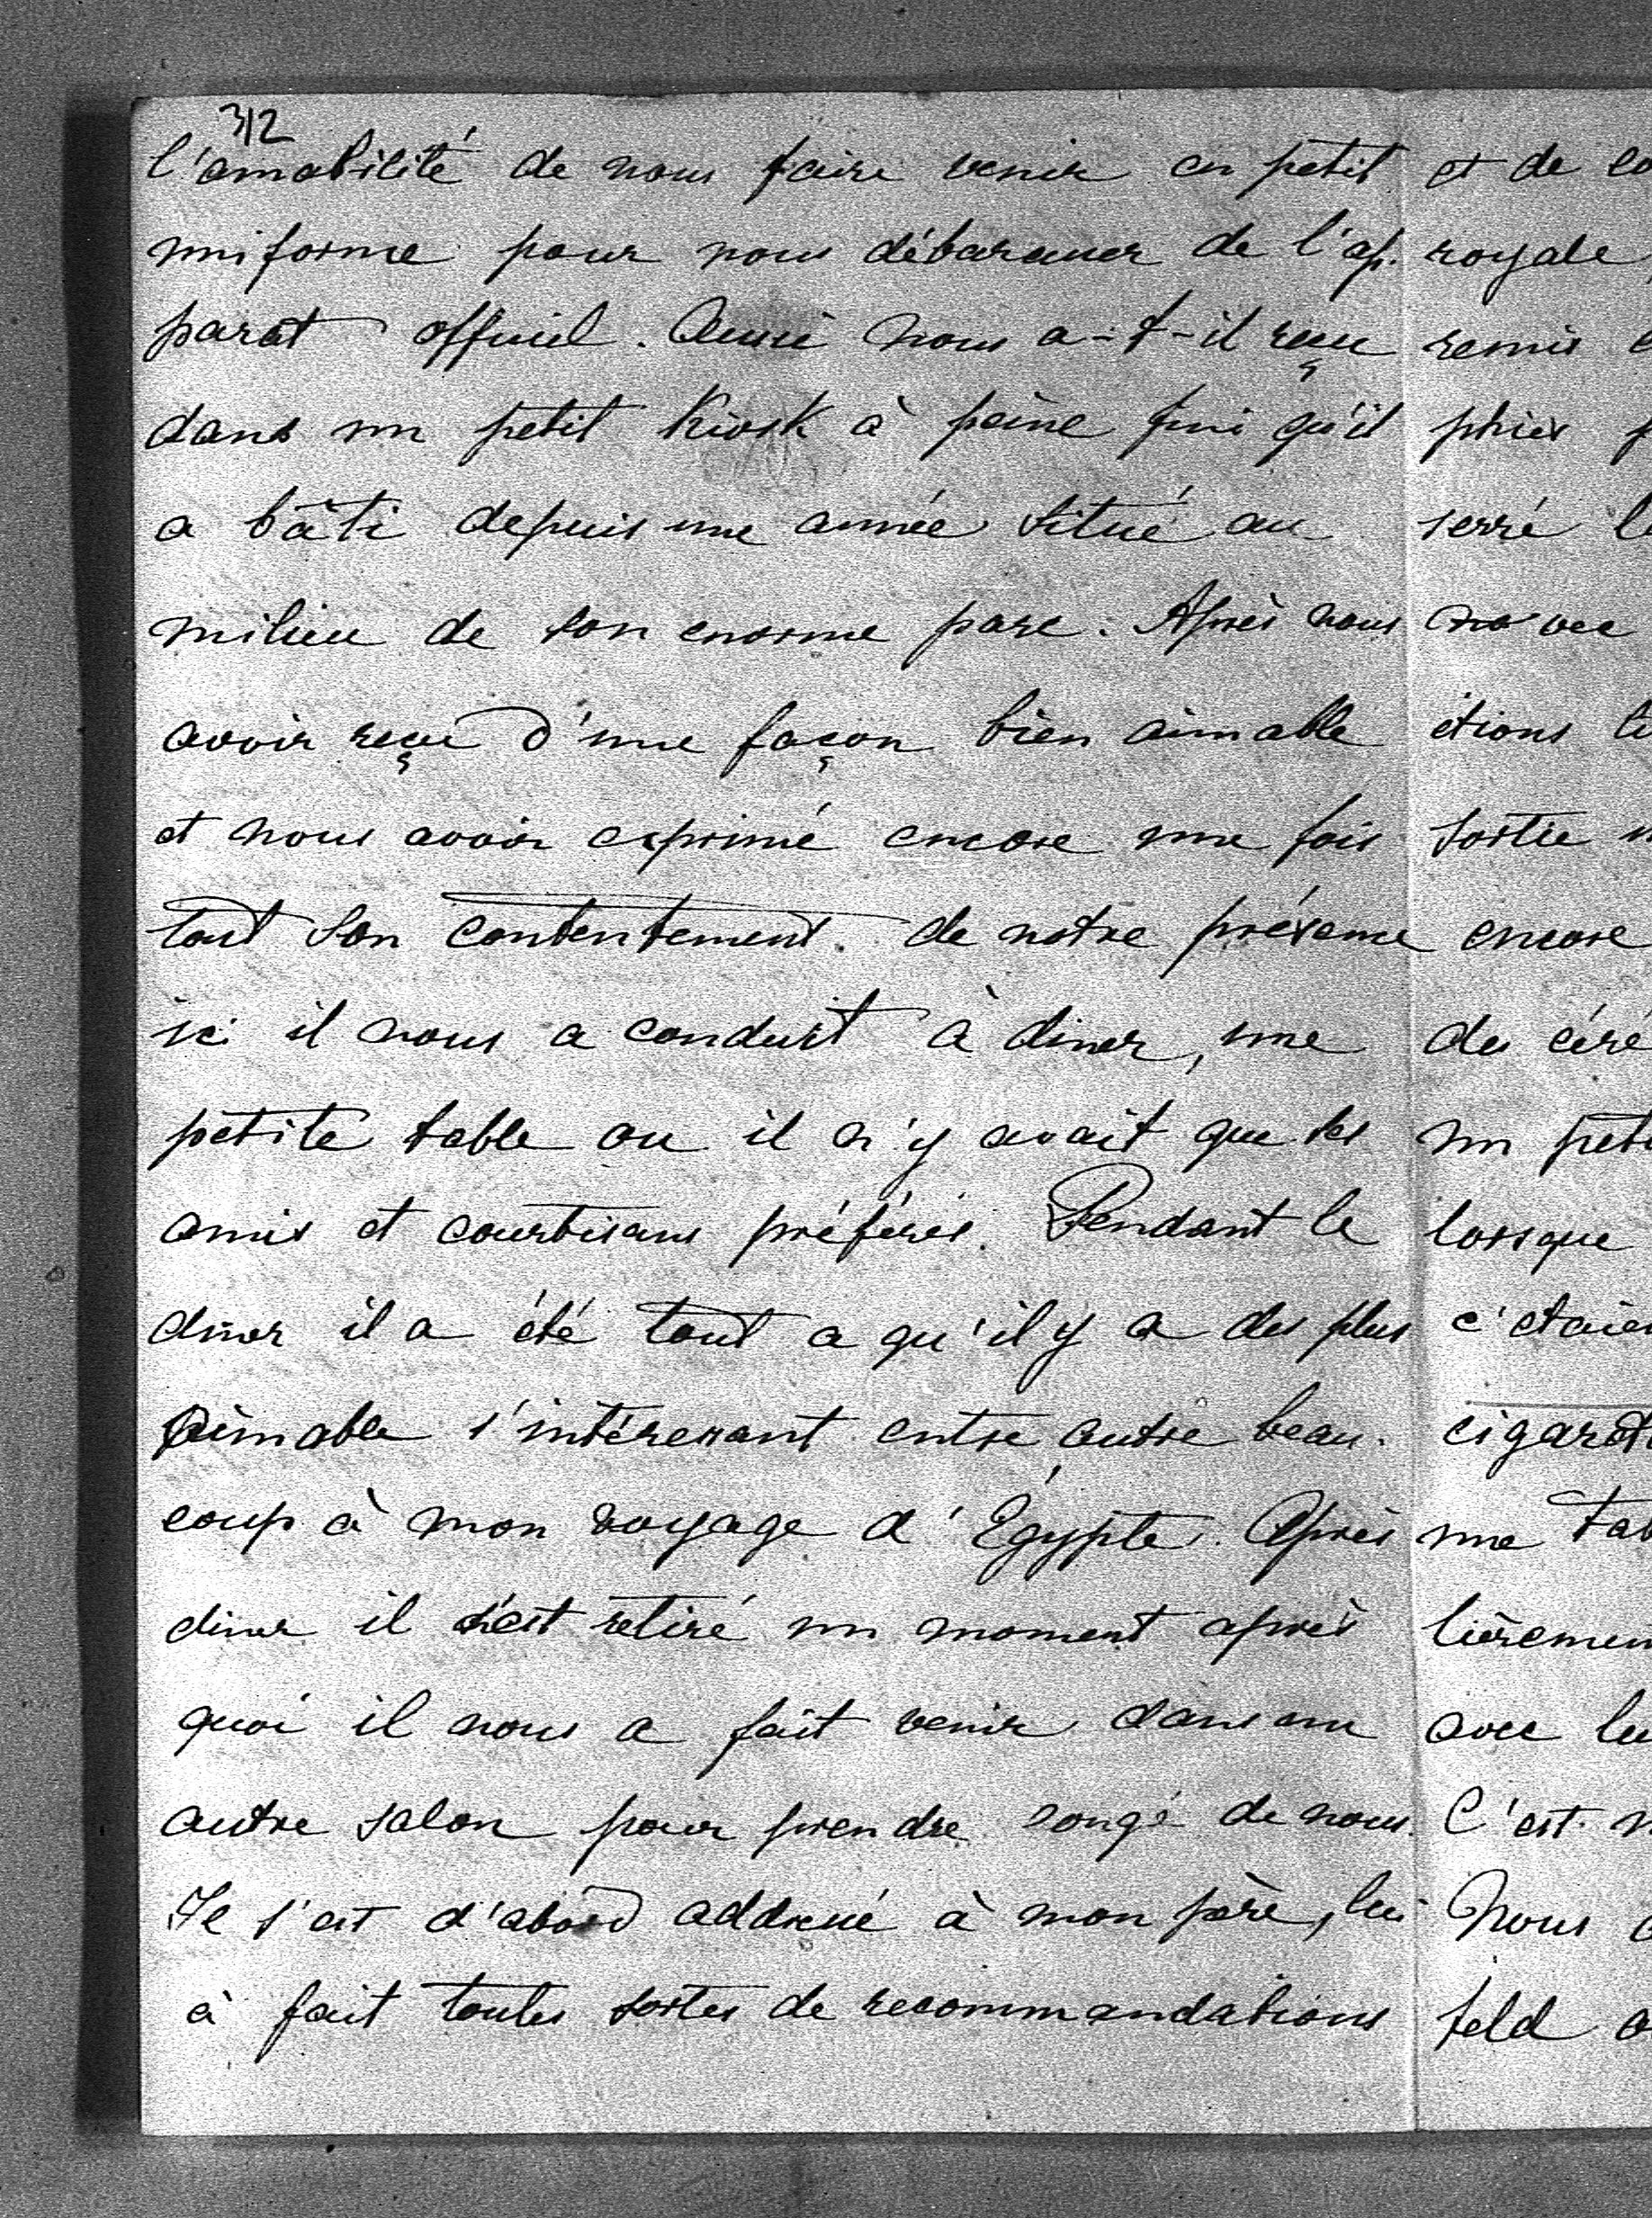 312
l'amabilité de nous faire venir en petit
uniforme pour nous débarasser de l'ap-
parat officiel. Aussi nous a-t-il reçu
dans un petit Kiosk à peine fini qu'il
a bâti depuis une année situé au
milieu de son enorme parc. Après nous
avoir reçu d'une façon bien aimable
et nous avoir exprimé encore une fois
tout son contentement de notre présence
ici il nous a conduit à diner, une
petite table ou il n'y avait que ses
amis et courtisans préférés. Pendant le
diner il a été tout ce qu'il y a des plus
aimable s'intéressant entre autre beau-
coup à mon voyage d'Égypte. Après
diner il s'est retiré un moment après
quoi il nous a fait venir dans un
autre salon pour prendre congé de nous.
Il s'est d'abord addressé à mon père, lui
à fait toutes sortes de recommandations
et de co
royale
remis
phies
serré l
avec
étions
sortie
encore
de céré
un peti
lorsque
c'étaien
cigarett
une tab
lièremen
avec lu
C'est
Nous
feld